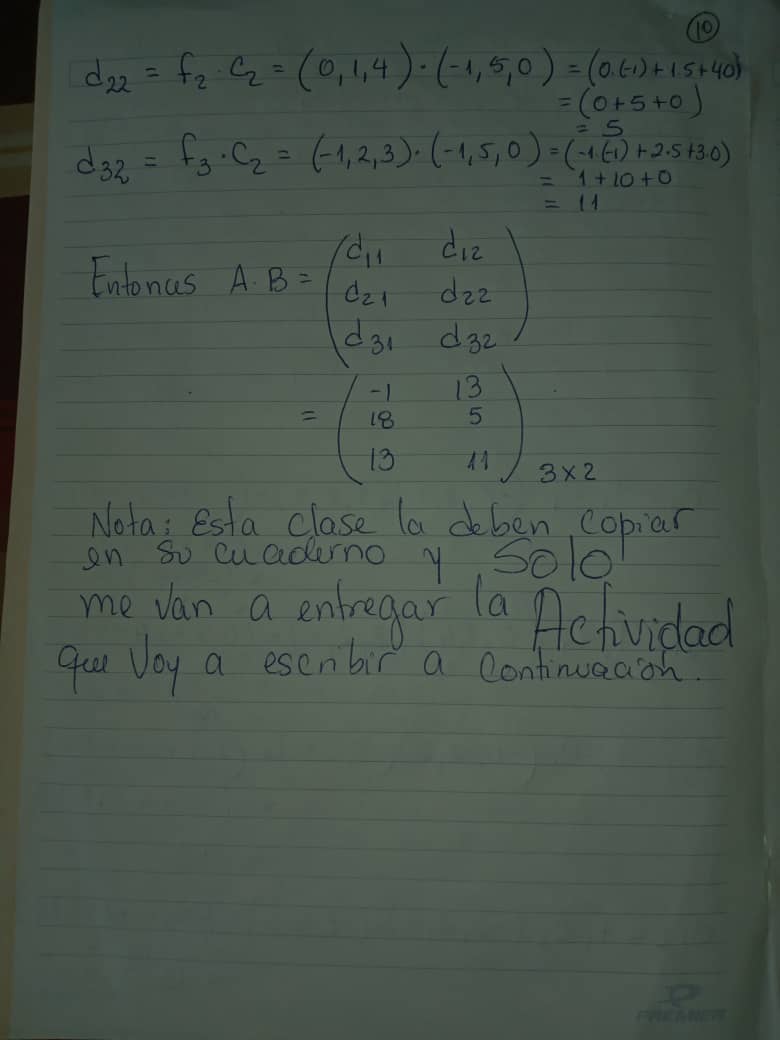 10
d22 = f2 · C2 = (0,1,4) · (-1,5,0) = (0.(-1)+1.5+40)
= (0+5+0)
= 5
d32 = f3 · C2 = (-1,2,3) · (-1,5,0) = (-1.(-1) + 2.5+3.0)
= 1+10+0
= 11
Entonces A.B = ( d11 d12
d21 d22
d31 d32 )
= ( -1 13
18 5
13 11 ) 3x2
Nota: Esta clase la deben copiar
en su cuaderno y Solo
me van a entregar la Actividad
que Voy a escribir a continuación.
PREMIER